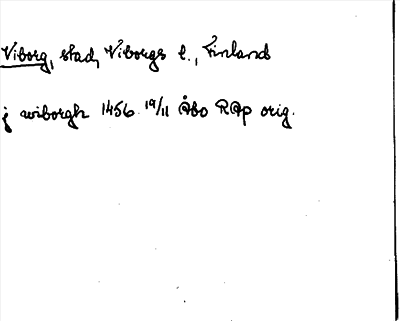 Viborg, stad, Viborgs l., Finland
j wiborgh 1456 19/11 Åbo RAp orig.